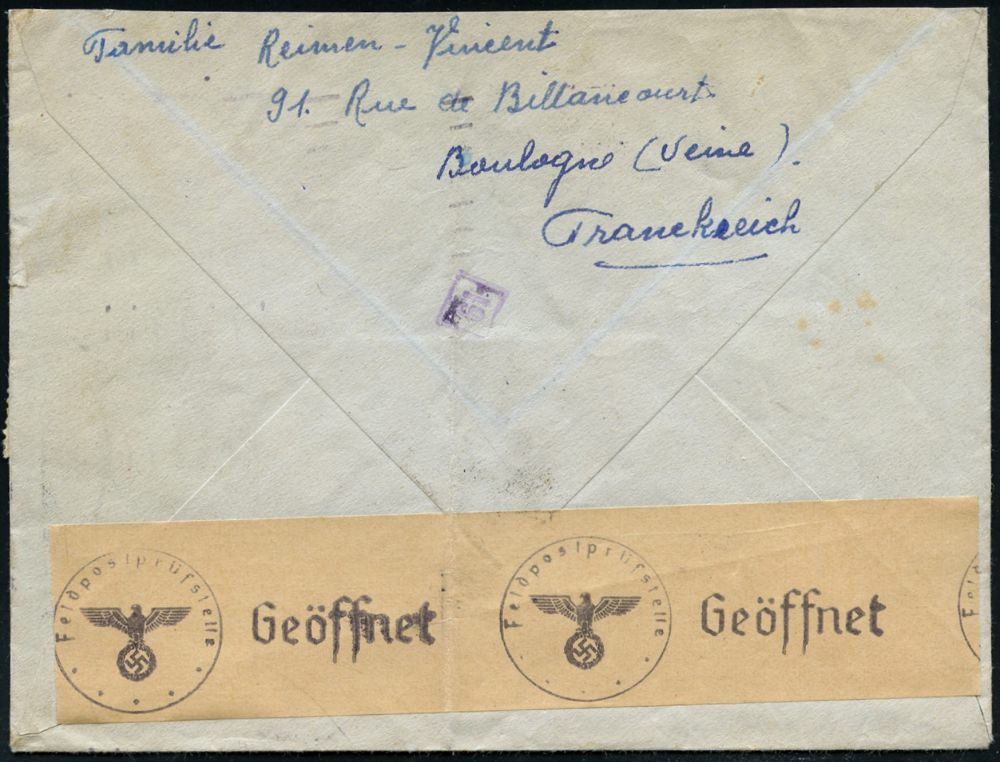 Familie Reimen - Vincent
91. Rue de Billancourt
Boulogne (Seine).
Franckreich
Feldpostprüfstelle
Geöffnet
Feldpostprüfstelle
Geöffnet
Fel